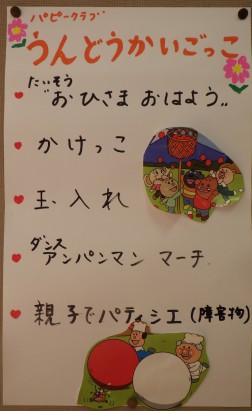 ハピークラブ
うんどうかいごっこ
たいそう
"おひさま おはよう"
かけっこ
玉入れ
ダンス
アンパンマン マーチ
親子でパティシエ(障害物)